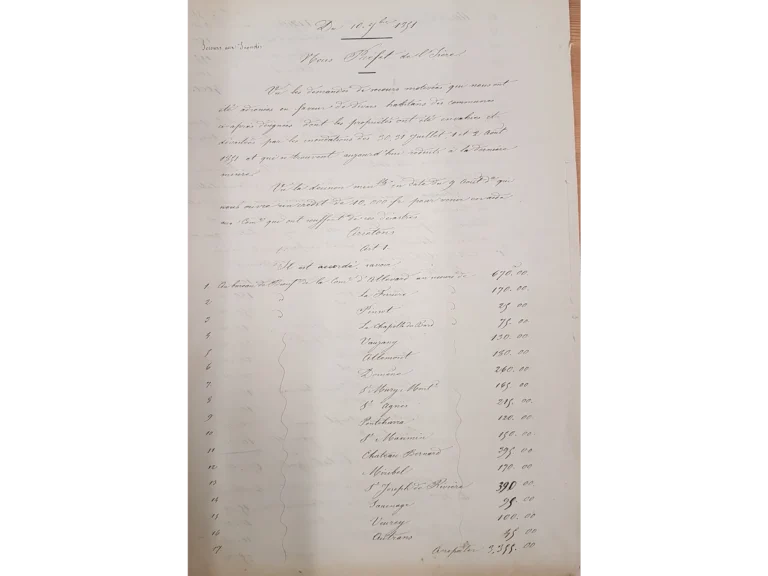 Du 10 7bre 1851
Secours aux Inondés
Nous Préfet de l'Isère
Vu les demandes de secours motivées que nous ont
été adressées en faveur de divers habitans des communes
ci-après désignées dont les propriétés ont été envahies et
dévastées par les inondations des 30, 31 Juillet, 1 et 2 Août
1851 et qui se trouvent aujourd'hui réduits à la dernière
misère
Vu la décision min.lle en date du 9 Août dr qui
nous ouvre un crédit de 10,000 fr pour venir en aide
aux Comes qui ont souffert de ces désastres
Arrêtons
Art 1
Il est accordé, savoir
1 Au bureau de bienf. de la Come d'Allevard un secours de 670.00
2 La Ferrière 170.00
3 Pinsot 25.00
La Chapelle du Bard 75.00
Vaujany 130.00
5 Allemont 180.00
6 Domène 260.00
7 St Mury-Mont. 165.00
8 St Agnès 215.00
9 Pontcharra 120.00
St Maximin 150.00
11 Château Bernard 395.00
12 Miribel 170.00
13 St Joseph de Rivière 390.00
Sassenage 95.00
15 Veurey 100.00
Autrans 45.00
17 A reporter 3,355.00